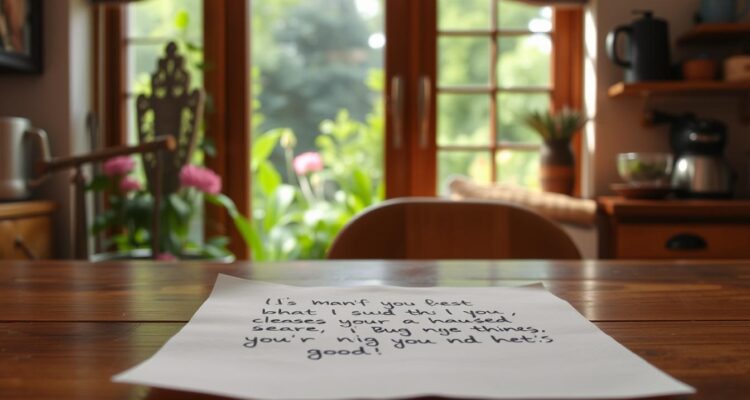 It's man'f you best
bhat I suid th. I you,
cleases your a haused
seare, I Bug nye thines.
you'r nig you nd het's
good!